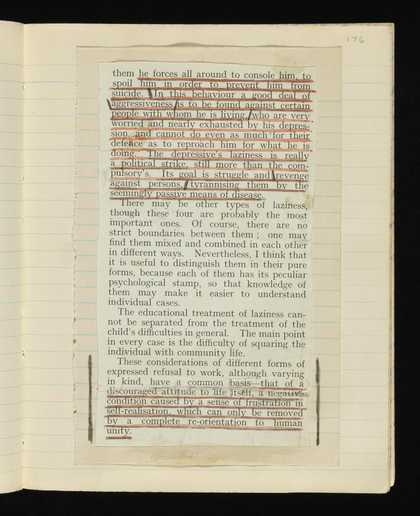 176
them he forces all around to console him, to
spoil him in order to prevent him from
suicide. In this behaviour a good deal of
aggressiveness is to be found against certain
people with whom he is living, who are very
worried and nearly exhausted by his depres-
sion, and cannot do even as much for their
defence as to reproach him for what he is
doing. The depressive's laziness is really
a political strike, still more than the com-
pulsory's. Its goal is struggle and revenge
against persons, tyrannising them by the
seemingly passive means of disease.
There may be other types of laziness,
though these four are probably the most
important ones. Of course, there are no
strict boundaries between them; one may
find them mixed and combined in each other
in different ways. Nevertheless, I think that
it is useful to distinguish them in their pure
forms, because each of them has its peculiar
psychological stamp, so that knowledge of
them may make it easier to understand
individual cases.
The educational treatment of laziness can-
not be separated from the treatment of the
child's difficulties in general. The main point
in every case is the difficulty of squaring the
individual with community life.
These considerations of different forms of
expressed refusal to work, although varying
in kind, have a common basis—that of a
discouraged attitude to life itself, a negative
condition caused by a sense of frustration in
self-realisation, which can only be removed
by a complete re-orientation to human
unity.